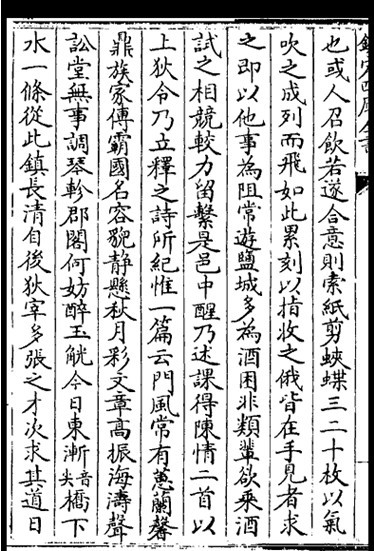 欽定四庫全書
也或人召飲若遂合意則素紙剪蛺蝶三二十枚以氣
吹之成列而飛如此累刻以指收之俄皆在手見者求
之即以他事為阻常遊鹽城多為酒困非類輩欲乘酒
試之相競較力留繫是邑中醒乃述課得陳情二首以
上狄令乃立釋之詩所紀惟一篇云門風常有蕙蘭馨
鼎族家傳霸國名容貌靜懸秋月彩文章高振海濤聲
訟堂無事調琴軫郡閣何妨醉玉觥今日東漸音尖橋下
水一條從此鎮長清自後狄宰多張之才次求其道日